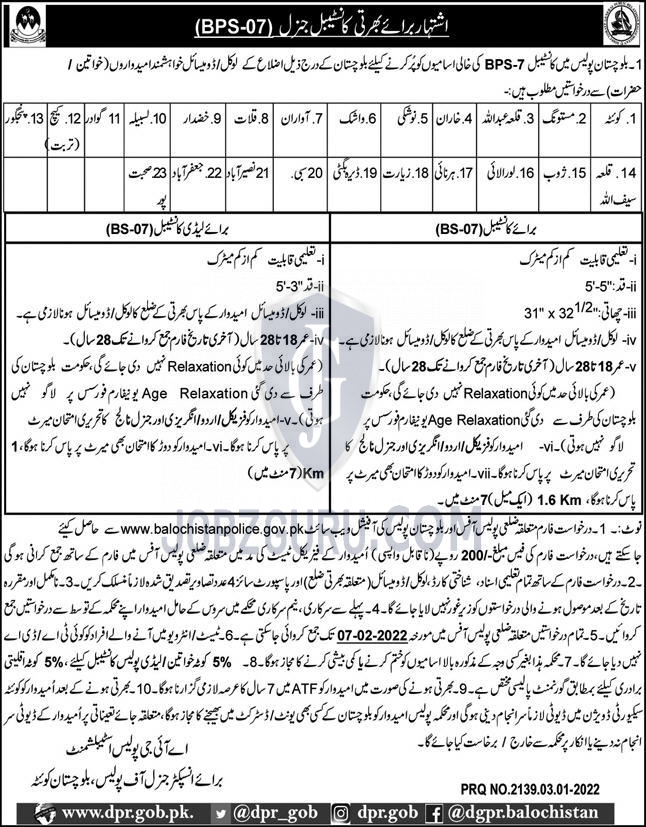 اشتہار برائے بھرتی کانسٹیبل جنرل (BPS-07)
1۔ بلوچستان پولیس میں کانسٹیبل BPS-7 کی خالی اسامیوں کو پُر کرنے کیلئے بلوچستان کے درج ذیل اضلاع کے لوکل/ڈومیسائل خواہشمند امیدواروں (خواتین /
حضرات) سے درخواستیں مطلوب ہیں:-
1۔ کوئٹہ 2۔ مستونگ 3۔ قلعہ عبداللہ 4۔ خاران 5۔ نوشکی 6۔ واشک 7۔ آواران 8۔ قلات 9۔ خضدار 10۔ لسبیلہ 11 گوادر 12۔ کیچ (تربت) 13۔ پنجگور
14۔ قلعہ سیف اللہ 15۔ ژوب 16۔ لورالائی 17۔ ہرنائی 18۔ زیارت 19۔ ڈیرہ بگٹی 20 سبی۔ 21 نصیر آباد 22۔ جعفر آباد 23 صحبت پور
برائے کانسٹیبل (BS-07)
i- تعلیمی قابلیت کم از کم میٹرک
ii- قد: 5'-5"
iii- چھاتی: 31" x 32 1/2"
iv- لوکل/ڈومیسائل امیدوار کے پاس بھرتی کے ضلع کا لوکل/ڈومیسائل ہونا لازمی ہے۔
v- عمر 18 تا 28 سال (آخری تاریخ فارم جمع کروانے تک 28 سال)
(عمر کی بالائی حد میں کوئی Relaxation نہیں دی جائے گی، حکومت
بلوچستان کی طرف سے دی گئی Age Relaxation یونیفارم فورسس پر
لاگو نہیں ہوتی)۔ vi- امیدوار کو فزیکل/اردو/انگریزی اور جنرل نالج کا
تحریری امتحان میرٹ پر پاس کرنا ہوگا۔ vii- امیدوار کو دوڑ کا امتحان بھی میرٹ پر
پاس کرنا ہوگا، 1.6 Km (ایک میل) 7 منٹ میں۔
برائے لیڈی کانسٹیبل (BS-07)
i- تعلیمی قابلیت کم از کم میٹرک
ii- قد 5'-3"
iii- لوکل/ڈومیسائل امیدوار کے پاس بھرتی کے ضلع کا لوکل/ڈومیسائل ہونا لازمی ہے۔
iv- عمر 18 تا 28 سال (آخری تاریخ فارم جمع کروانے تک 28 سال)
(عمر کی بالائی حد میں کوئی Relaxation نہیں دی جائے گی، حکومت بلوچستان کی
طرف سے دی گئی Age Relaxation یونیفارم فورسس پر لاگو نہیں
ہوتی)۔ v- امیدوار کو فزیکل/اردو/انگریزی اور جنرل نالج کا تحریری امتحان میرٹ
پر پاس کرنا ہوگا۔ vi- امیدوار کو دوڑ کا امتحان بھی میرٹ پر پاس کرنا ہوگا، 1
Km (7 منٹ میں)۔
JOBZGURU.COM
نوٹ:- 1- درخواست فارم متعلقہ ضلعی پولیس آفس اور بلوچستان پولیس کی آفیشل ویب سائٹ www.balochistanpolice.gov.pk سے حاصل کیئے
جاسکتے ہیں، درخواست فارم کی فیس مبلغ-/200 روپے (نا قابل واپسی) اُمیدوار کے فیزیکل ٹیسٹ کی مد میں متعلقہ ضلعی پولیس آفس میں فارم کے ساتھ جمع کرانی ہوگی
2- درخواست فارم کے ساتھ تمام تعلیمی اسناد، شناختی کارڈ، لوکل/ڈومیسائل (متعلقہ بھرتی ضلع) اور پاسپورٹ سائز 4 عدد تصاویر تصدیق شدہ لازماً منسلک کریں۔ 3- نامکمل اور مقررہ
تاریخ کے بعد موصول ہونے والی درخواستوں کو زیر غور نہیں لایا جائے گا۔ 4- پہلے سے سرکاری، نیم سرکاری محکمے میں سروس کے حامل امیدوار اپنے محکمہ کے توسط سے درخواستیں جمع
کروائیں۔ 5- تمام درخواستیں متعلقہ ضلعی پولیس آفس میں مورخہ 07-02-2022 تک جمع کروائی جاسکتی ہے۔ 6- ٹیسٹ/انٹرویو میں آنے والے افراد کو کوئی ٹی اے/ڈی اے
نہیں دیا جائے گا۔ 7- محکمہ ہذا بغیر کسی وجہ کے مذکورہ بالا اسامیوں کو ختم کرنے یا کمی بیشی کرنے کا مجاز ہوگا۔ 8- 5% کوٹہ خواتین/لیڈی پولیس کانسٹیبل کیلئے، 5% کوٹہ اقلیتی
برادری کیلئے بمطابق گورنمنٹ پالیسی مختص ہے۔ 9- بھرتی ہونے کی صورت میں امیدوار کو ATF میں 7 سال کا عرصہ لازمی گزارنا ہوگا۔ 10- بھرتی ہونے کے بعد اُمیدوار کو کوئٹہ
سیکیورٹی ڈویژن میں ڈیوٹی لازماً سر انجام دینی ہوگی اور محکمہ پولیس امیدوار کو بلوچستان کے کسی بھی یونٹ/ڈسٹرکٹ میں بھیجنے کا مجاز ہوگا، متعلقہ جائے تعیناتی پر اُمیدوار کے ڈیوٹی سر
انجام نہ دینے یا انکار پر محکمہ سے خارج / برخاست کیا جائے گا۔
اے آئی جی پولیس اسٹیبلشمنٹ
برائے انسپکٹر جنرل آف پولیس، بلوچستان کوئٹہ
PRQ NO.2139.03.01-2022
www.dpr.gob.pk. @dpr_gob @dgpr.balochistan